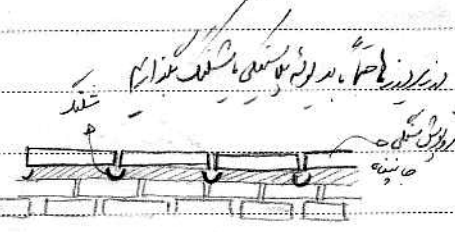 در زیر درزها حتماً باید لوله پلاستیکی یا شلنگ بگذاریم
شلنگ
درپوش سنگی
جانپناه